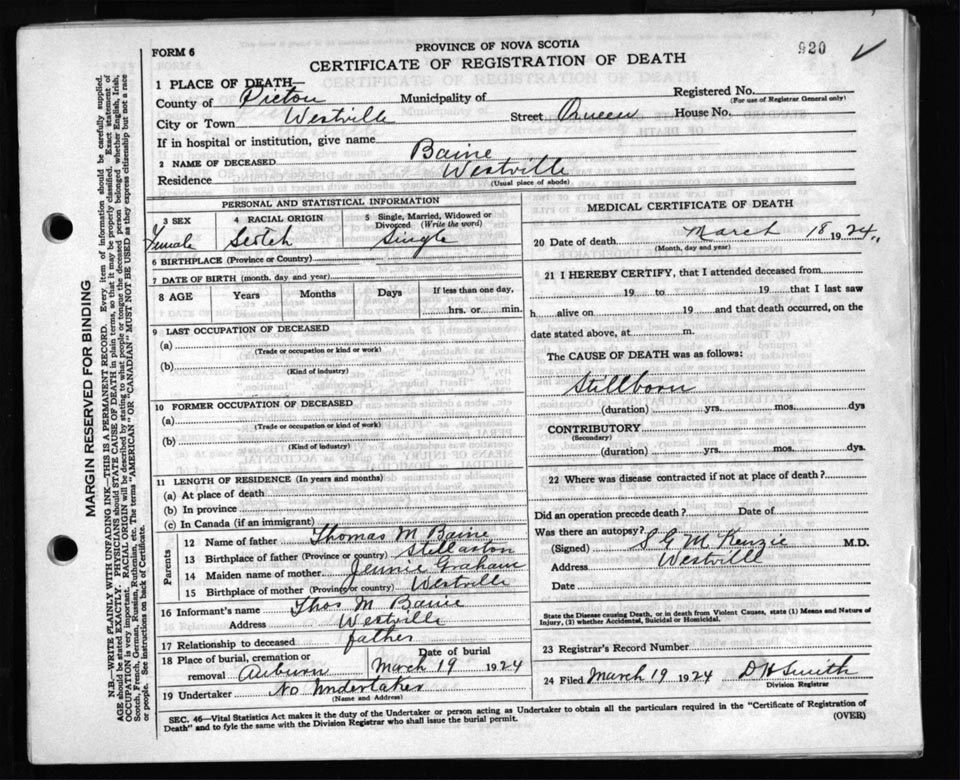 FORM 6
PROVINCE OF NOVA SCOTIA
920
CERTIFICATE OF REGISTRATION OF DEATH
1 PLACE OF DEATH—
County of Pictou Municipality of
Registered No.
(For use of Registrar General only)
City or Town Westville Street Queen House No.
If in hospital or institution, give name
2 NAME OF DECEASED Baine
Residence Westville
(Usual place of abode)
PERSONAL AND STATISTICAL INFORMATION
3 SEX
Female
4 RACIAL ORIGIN
Scotch
5 Single, Married, Widowed or Divorced (Write the word)
Single
6 BIRTHPLACE (Province or Country)
7 DATE OF BIRTH (month, day and year)
8 AGE Years Months Days If less than one day,
hrs. or min.
9 LAST OCCUPATION OF DECEASED
(a)
(Trade or occupation or kind of work)
(b)
(Kind of industry)
10 FORMER OCCUPATION OF DECEASED
(a)
(Trade or occupation or kind of work)
(b)
(Kind of industry)
11 LENGTH OF RESIDENCE (In years and months)
(a) At place of death
(b) In province
(c) In Canada (if an immigrant)
Parents
12 Name of father Thomas M Baine
13 Birthplace of father (Province or country) Stellarton
14 Maiden name of mother Jennie Graham
15 Birthplace of mother (Province or country) Westville
16 Informant's name Thos M Baine
Address Westville
17 Relationship to deceased father
18 Place of burial, cremation or removal Auburn
Date of burial
March 19 1924
19 Undertaker No Undertaker
(Name and Address)
MEDICAL CERTIFICATE OF DEATH
20 Date of death March 18 1924
(Month, day and year)
21 I HEREBY CERTIFY, that I attended deceased from
19 to 19 that I last saw
h alive on 19 and that death occurred, on the
date stated above, at m.
The CAUSE OF DEATH was as follows:
Stillborn
(duration) yrs. mos. dys
CONTRIBUTORY
(Secondary)
(duration) yrs. mos. dys
22 Where was disease contracted if not at place of death?
Did an operation precede death? Date of
Was there an autopsy?
(Signed) S G McKenzie M.D.
Address Westville
Date
State the Disease causing Death, or in death from Violent Causes, state (1) Means and Nature of
Injury, (2) whether Accidental, Suicidal or Homicidal.
23 Registrar's Record Number
24 Filed March 19 1924 D H Smith
Division Registrar
SEC. 46—Vital Statistics Act makes it the duty of the Undertaker or person acting as Undertaker to obtain all the particulars required in the "Certificate of Registration of
Death" and to fyle the same with the Division Registrar who shall issue the burial permit.
(OVER)
MARGIN RESERVED FOR BINDING
N.B.—WRITE PLAINLY WITH UNFADING INK—THIS IS A PERMANENT RECORD. Every item of information should be carefully supplied.
AGE should be stated EXACTLY. PHYSICIANS should STATE CAUSE OF DEATH in plain terms, so that it may be properly classified. Exact statement of
OCCUPATION is very important. RACIAL ORIGIN will be described by stating to what people or tongue the deceased person belonged whether English, Irish,
Scotch, French, German, Russian, Ruthenian, etc. The terms "AMERICAN" OR "CANADIAN" MUST NOT BE USED as they express citizenship but not a race
or people. See instructions on back of Certificate.